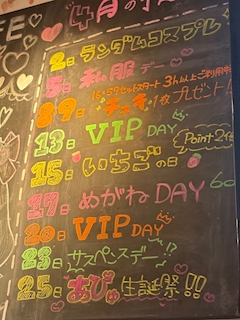 4月の
2日 ランダムコスプレ
5日 私服デー
16:59セットスタート 3h以上ご利用
9日 チェキ1枚プレゼント!
13日 VIP DAY
15日 いちごの日
Point 2倍
17日 めがねDAY
20日 VIP DAY
23日 サスペンスデー!?
25日 あぴ生誕祭!!